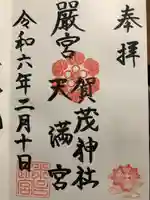 奉拝
賀茂神社
嚴宮天満宮
令和六年二月十日